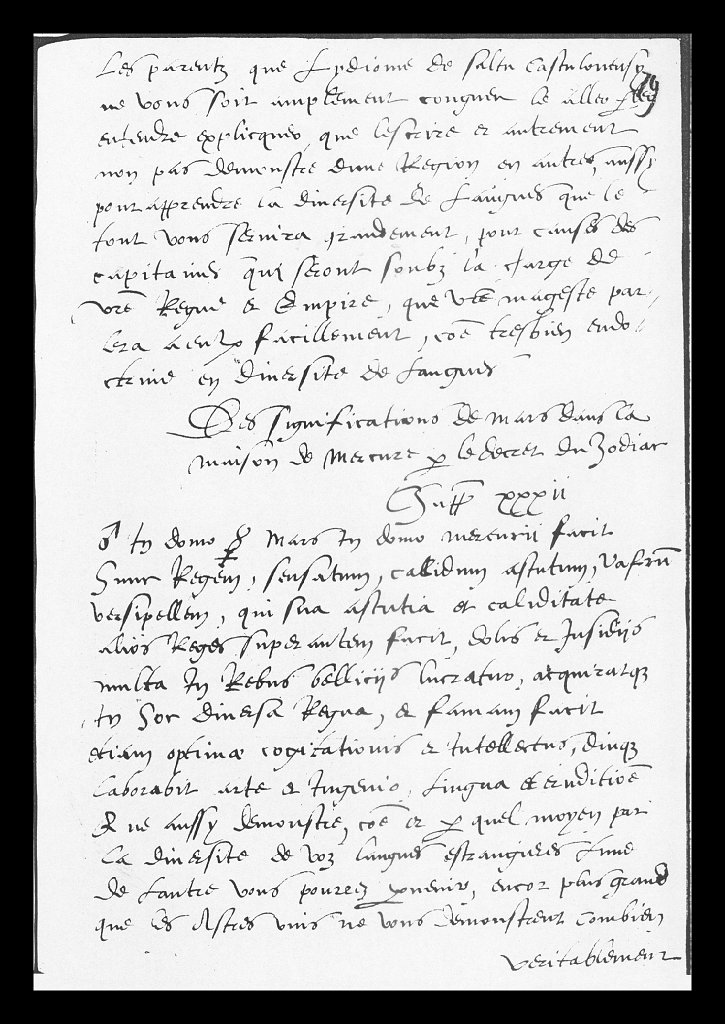 79
Les parentz que Lydiome de saltu Castulonensy
ne vous soit amplement congneu le
entendre explicquer, que lescrire et autrement
non pas demonstre dune Region en autres, aussy
pour apprendre la diversite de Langues que le
tout vous servira grandement, pour causes des
capitaines qui seront soubz la charge de
vre Regne et Empire, que vre mageste par-
lera a eulx facillement, coe tresbien endo-
ctrine en diversite de Langues
Des significations de Mars dans la
maison de Mercure p le decret du Zodiac
Chapp xxxii
♂ in domo ☿ Mars in domo mercurii facit
hunc Regem, sensatum, callidum astutum, Vafrū
versipellem, qui sua astutia et caliditate
alios Reges superantem facit, dolis et Insidijs
multa in Rebus bellicijs lucratur, acquiratque
in hoc diversa Regna, et famam facit
etiam optimæ cogitationis et Intellectus,
laborabit arte et Ingenio, Lingua et eruditioē
& ne aussy demonstre, coe et p quel moyen par
la diversite de voz langues estrangieres Lune
de Lautre vous pourrez pvenir, encor plus grand
que les Astres vnis ne vous demonstrent combien
veritablement